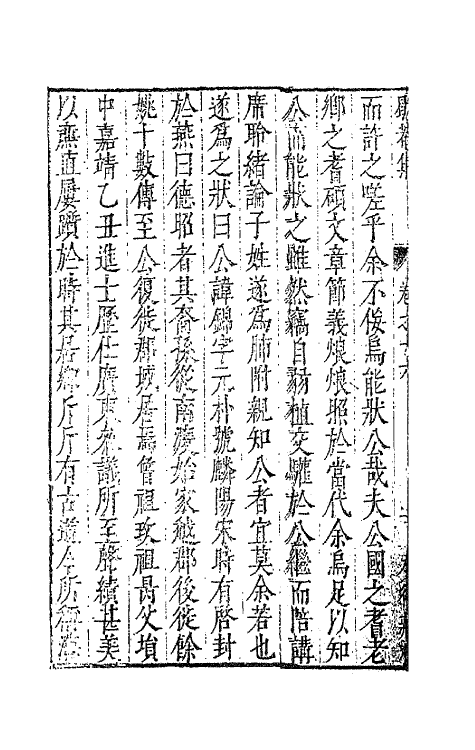 歇菴集 卷之十六
而許之嗟乎余不佞烏能狀公哉夫公國之耆老
鄉之耆碩文章節義烺烺照於當代余烏足以知
公而能狀之雖然竊自翦植交驩於公繼而陪講
席聆緒論子姓遂爲肺附親知公者宜莫余若也
遂爲之狀曰公諱錦字元朴號麟陽宋時有啓封
於燕曰德昭者其裔孫從南渡始家越郡後徙餘
姚十數傳至公復徙郡城居焉曾祖玫祖昺父塤
中嘉靖乙丑進士歷仕廣東叅議所至聲績甚美
以燕直屢躓於時其居鄉斤斤有古道今所稱